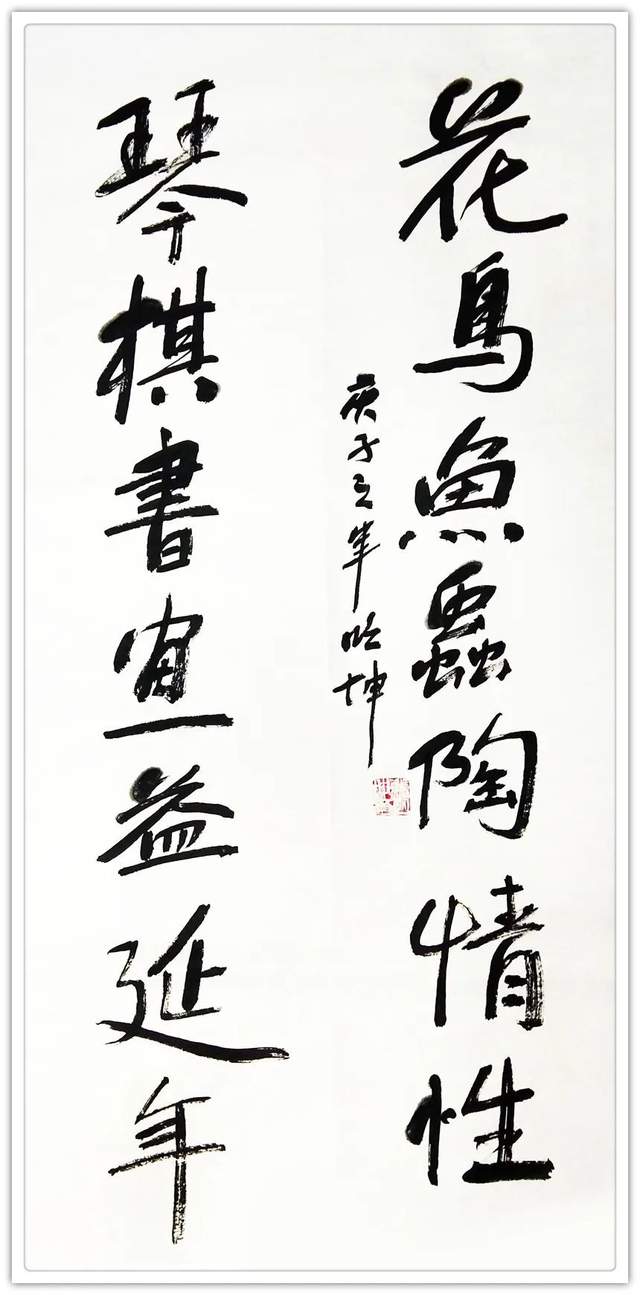 花鳥魚蟲陶情性
庚子之年 坤
琴棋書畫益延年